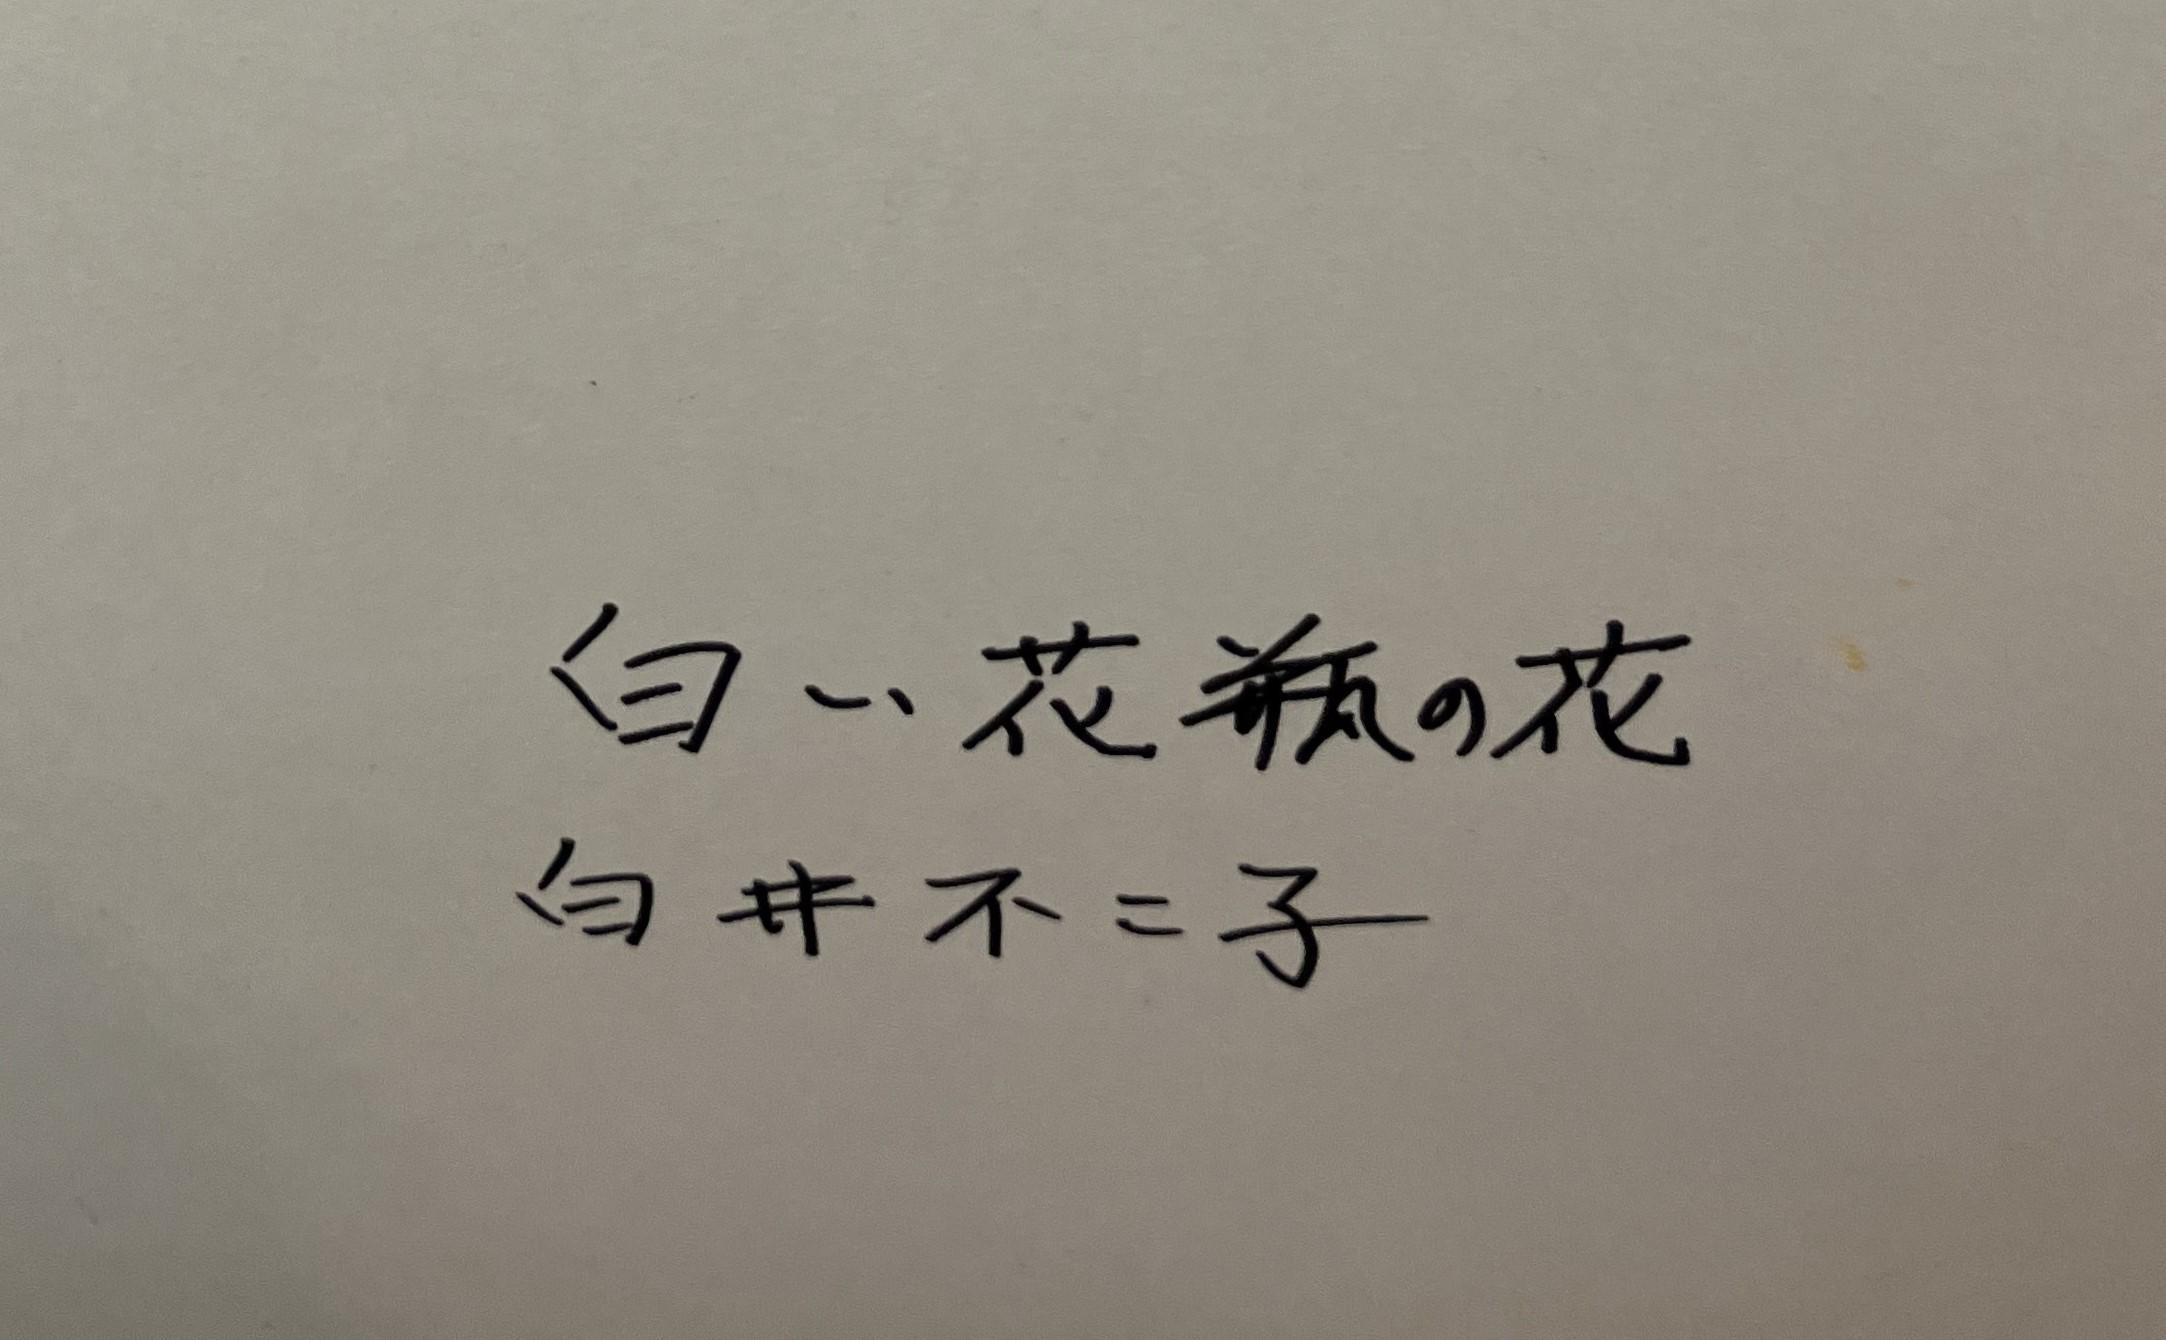 白い花瓶の花
白井不二子